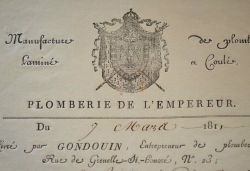 Manufacture de plomb
laminé & Coulé.
PLOMBERIE DE L'EMPEREUR.
Du 9 Mars 1811
Livré par GONDOUIN, Entrepreneur de plombe
Rue de Grenelle-St.-Honoré, N.º 23;